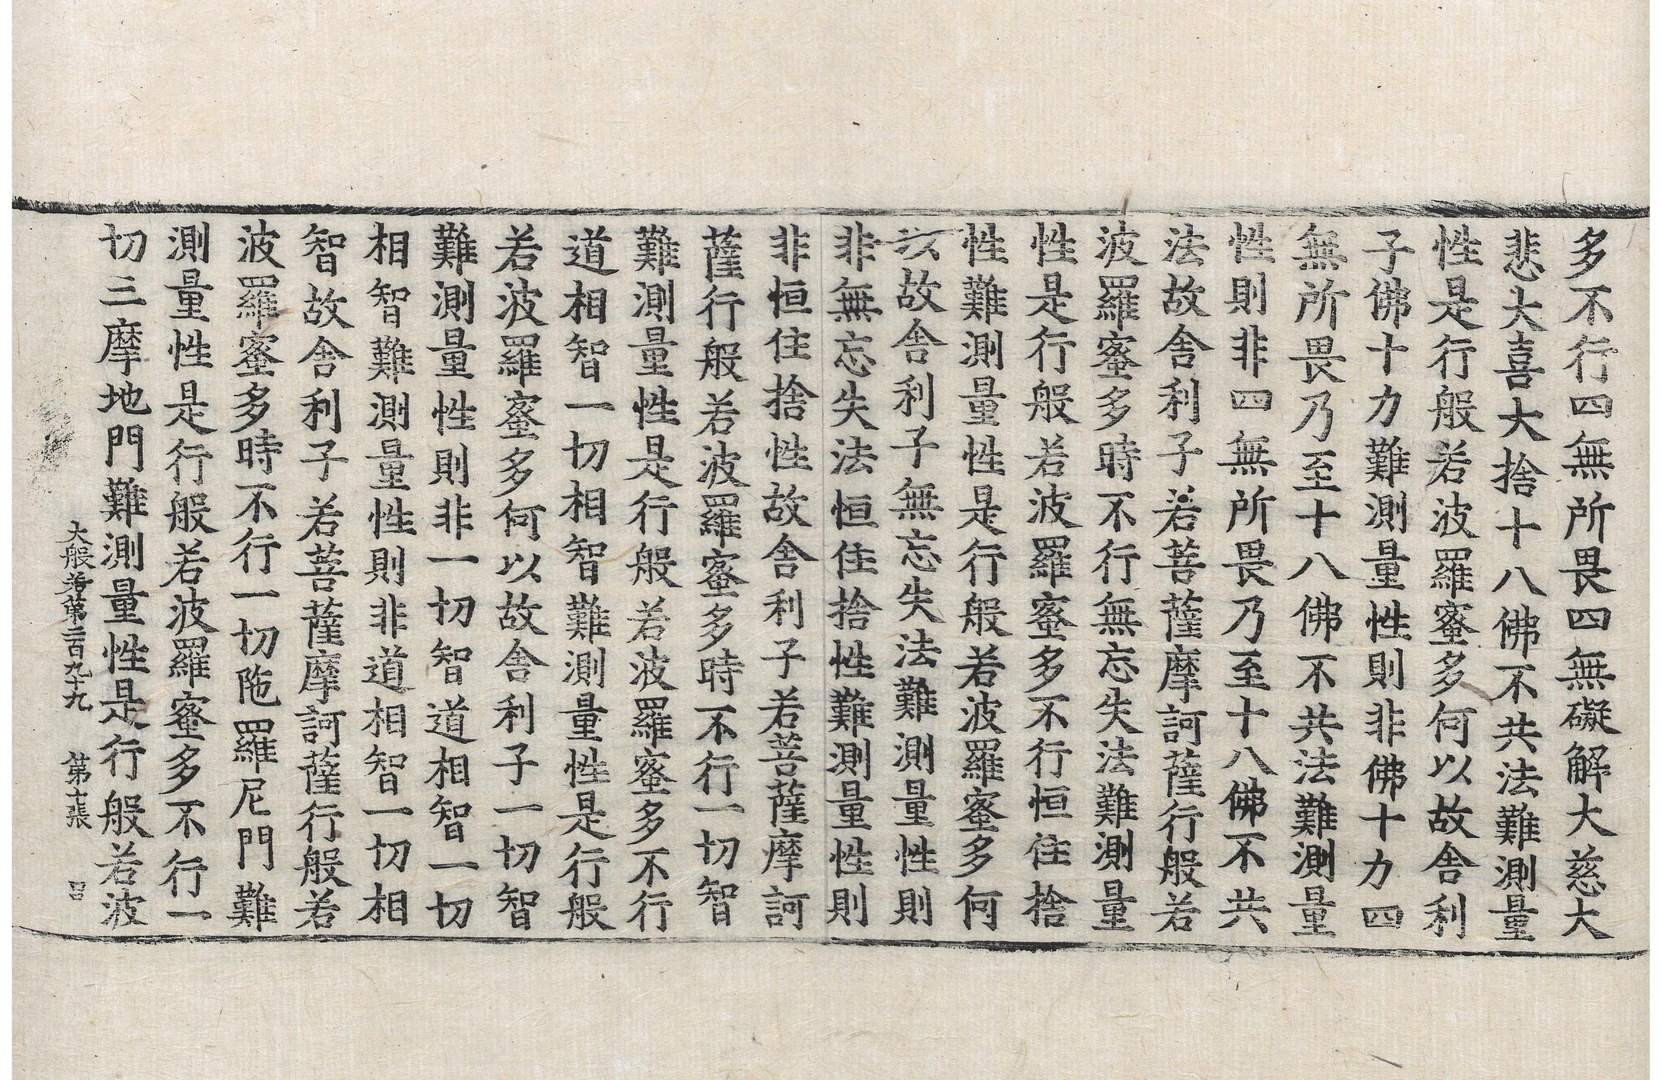 多不行四無所畏四無礙解大慈大
悲大喜大捨十八佛不共法難測量
性是行般若波羅蜜多何以故舍利
子佛十力難測量性則非佛十力四
無所畏乃至十八佛不共法難測量
性則非四無所畏乃至十八佛不共
法故舍利子若菩薩摩訶薩行般若
波羅蜜多時不行無忘失法難測量
性是行般若波羅蜜多不行恒住捨
性難測量性是行般若波羅蜜多何
以故舍利子無忘失法難測量性則
非無忘失法恒住捨性難測量性則
非恒住捨性故舍利子若菩薩摩訶
薩行般若波羅蜜多時不行一切智
難測量性是行般若波羅蜜多不行
道相智一切相智難測量性是行般
若波羅蜜多何以故舍利子一切智
難測量性則非一切智道相智一切
相智難測量性則非道相智一切相
智故舍利子若菩薩摩訶薩行般若
波羅蜜多時不行一切陁羅尼門難
測量性是行般若波羅蜜多不行一
切三摩地門難測量性是行般若波
大般若第二百九十九 第七張 呂